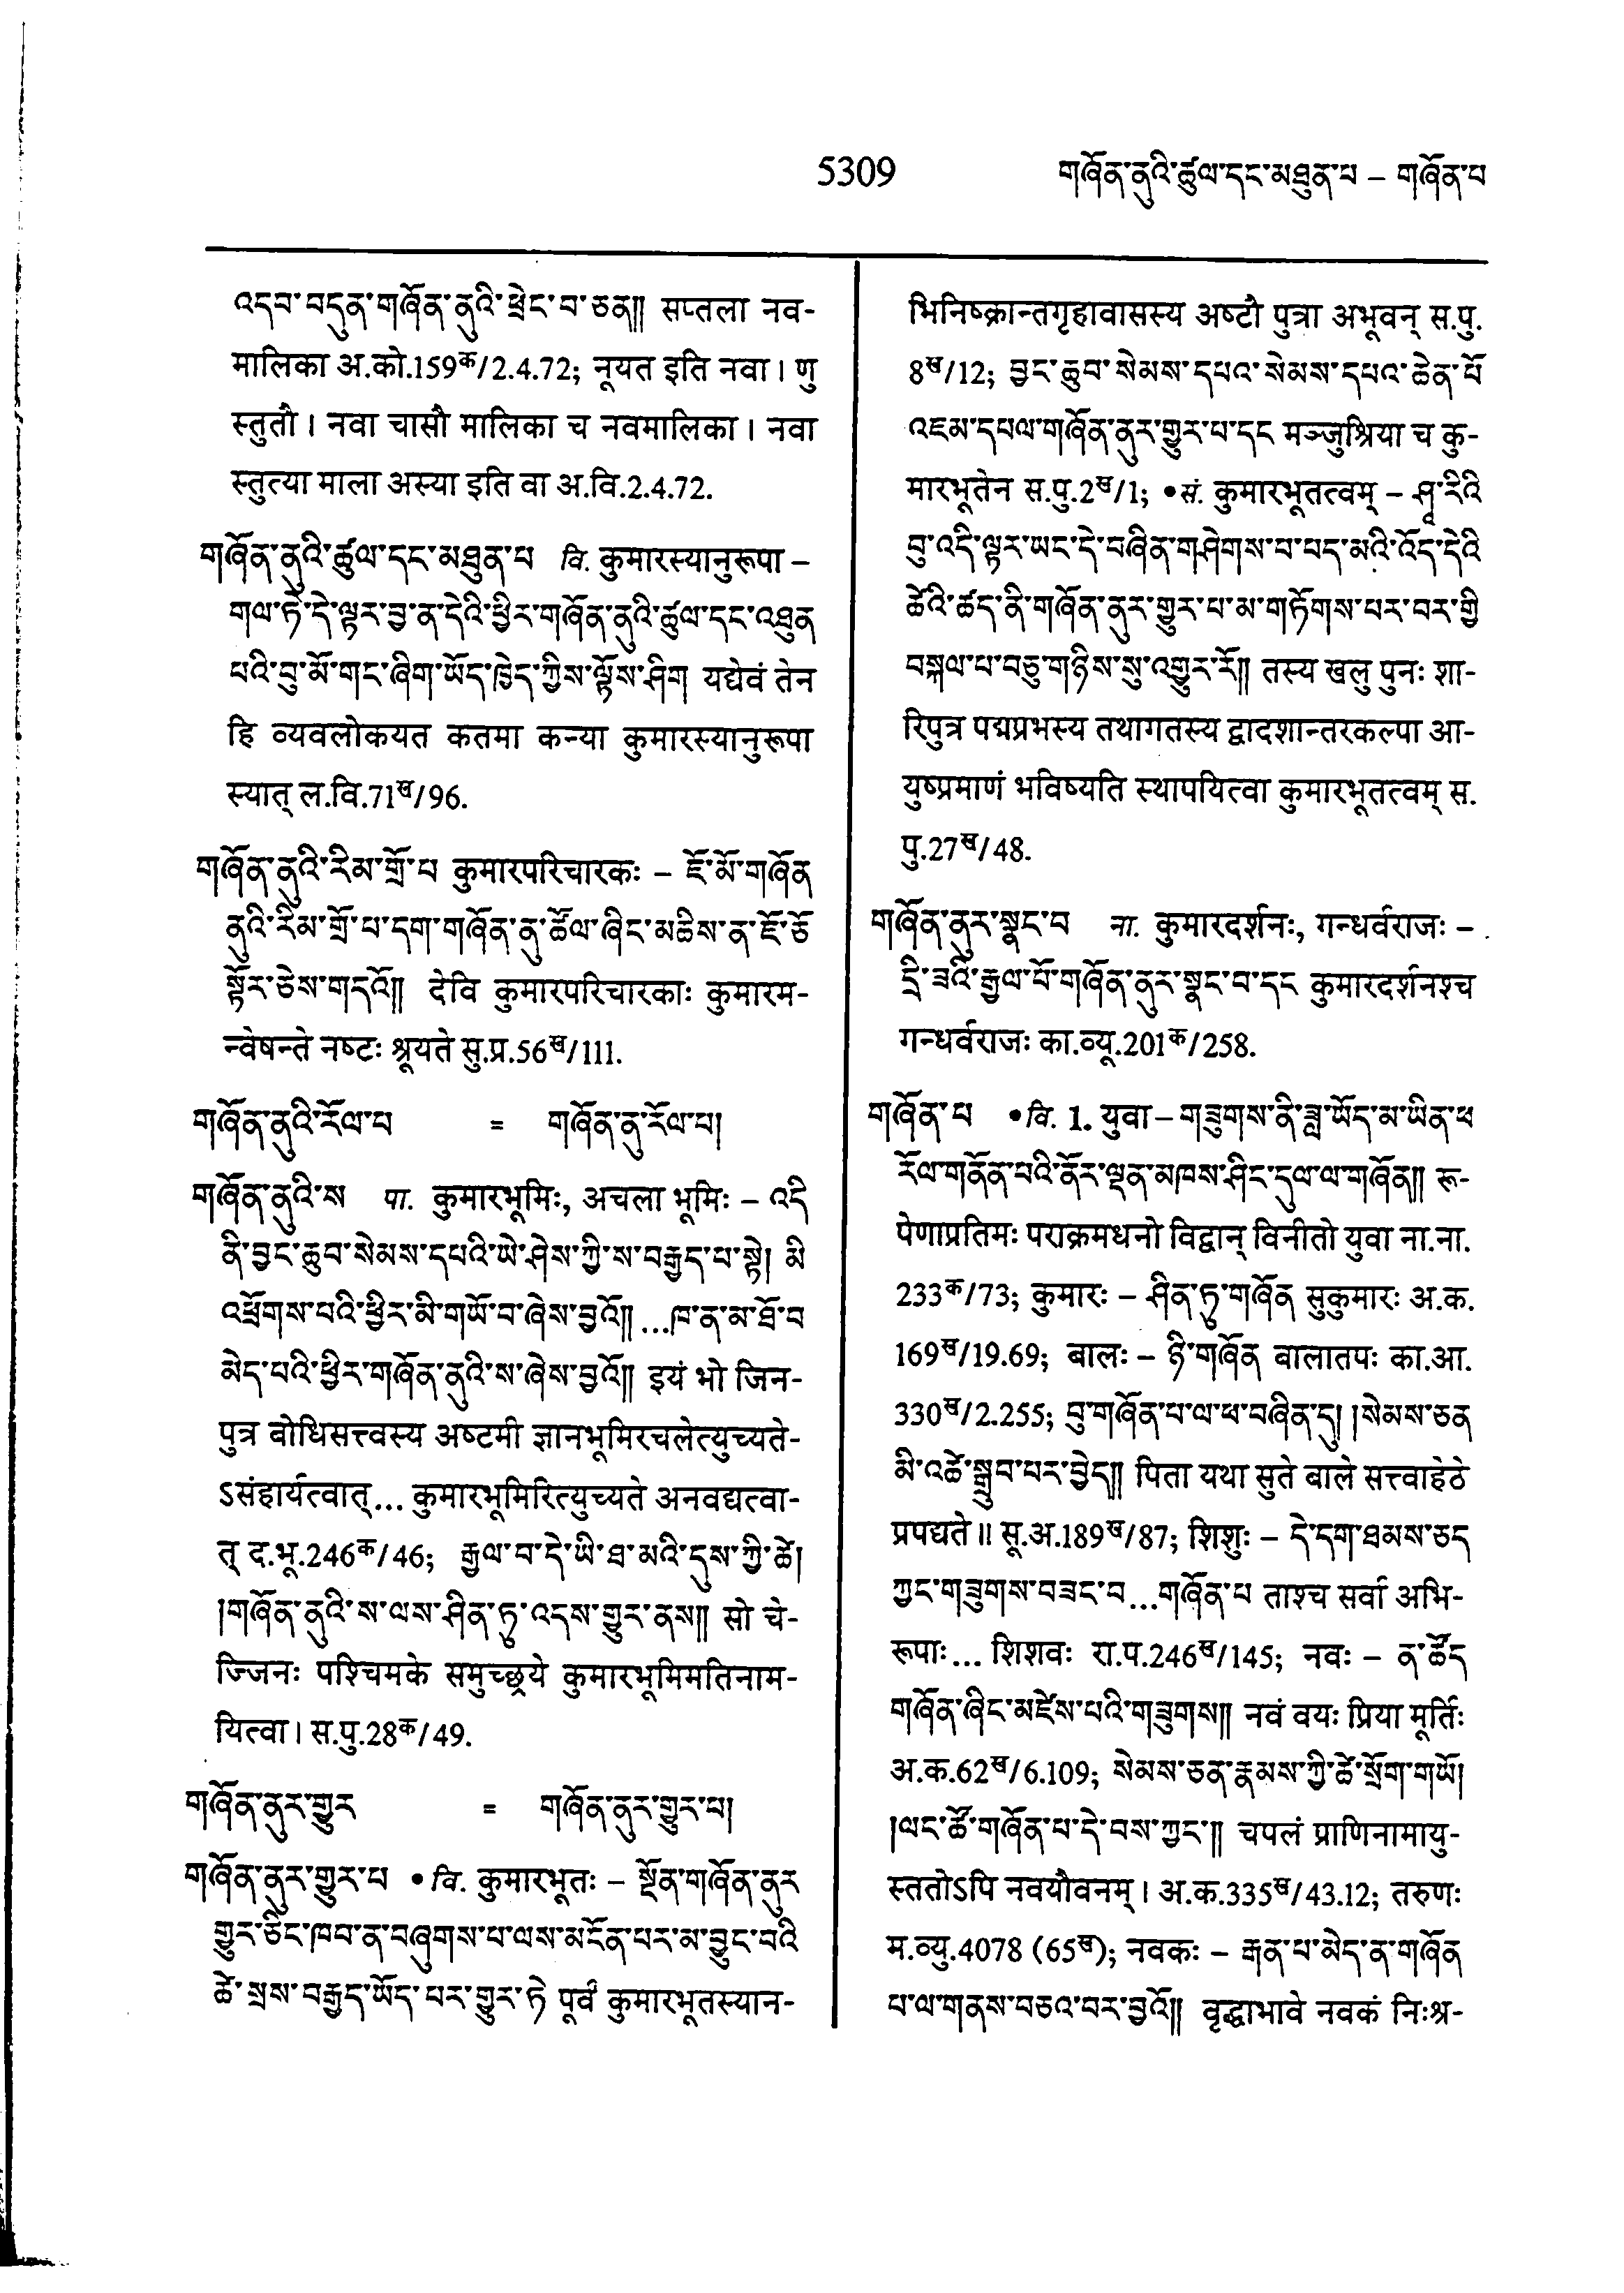 5309 གཞོན་ནུའི་ཚུལ་དང་མཐུན་པ – གཞོན་པ
འདབ་བདུན་གཞོན་ནུའི་ཕྲེང་བ་ཅན།། सप्तला नव-
मालिका अ.को.159क/2.4.72; नूयत इति नवा। णु
स्तुतौ। नवा चासौ मालिका च नवमालिका। नवा
स्तुत्या माला अस्या इति वा अ.वि.2.4.72.
གཞོན་ནུའི་ཚུལ་དང་མཐུན་པ वि. कुमारस्यानुरूपा –
གལ་ཏེ་དེ་ལྟར་བྱ་ན་དེའི་ཕྱིར་གཞོན་ནུའི་ཚུལ་དང་འཐུན
པའི་བུ་མོ་གང་ཞིག་ཡོད་ཁྱེད་ཀྱིས་ལྟོས་ཤིག यद्येवं तेन
हि व्यवलोकयत कतमा कन्या कुमारस्यानुरूपा
स्यात् ल.वि.71ख/96.
གཞོན་ནུའི་རིམ་གྲོ་པ कुमारपरिचारकः – ཇོ་མོ་གཞོན
ནུའི་རིམ་གྲོ་པ་དག་གཞོན་ནུ་ཚོལ་ཞིང་མཆིས་ན་ཇོ་ཅོ
སྟོར་ཅེས་གདའོ།། देवि कुमारपरिचारकाः कुमारम-
न्वेषन्ते नष्टः श्रूयते सु.प्र.56ख/111.
གཞོན་ནུའི་རོལ་པ = གཞོན་ནུ་རོལ་པ།
གཞོན་ནུའི་ས पा. कुमारभूमिः, अचला भूमिः – འདི
ནི་བྱང་ཆུབ་སེམས་དཔའི་ཡེ་ཤེས་ཀྱི་ས་བརྒྱད་པ་སྟེ། མི
འཕྲོགས་པའི་ཕྱིར་མི་གཡོ་བ་ཞེས་བྱའོ།། ...ཁ་ན་མ་ཐོ་བ
མེད་པའི་ཕྱིར་གཞོན་ནུའི་ས་ཞེས་བྱའོ།། इयं भो जिन-
पुत्र बोधिसत्त्वस्य अष्टमी ज्ञानभूमिरचलेत्युच्यते-
ऽसंहार्यत्वात्... कुमारभूमिरित्युच्यते अनवद्यत्वा-
त् द.भू.246क/46; རྒྱལ་བ་དེ་ཡི་ཐ་མའི་དུས་ཀྱི་ཚེ།
།གཞོན་ནུའི་ས་ལས་ཤིན་ཏུ་འདས་གྱུར་ནས།། सो चे-
ज्जिनः पश्चिमके समुच्छ्रये कुमारभूमिमतिनाम-
यित्वा। स.पु.28क/49.
གཞོན་ནུར་གྱུར = གཞོན་ནུར་གྱུར་པ།
གཞོན་ནུར་གྱུར་པ •वि. कुमारभूतः – སྔོན་གཞོན་ནུར
གྱུར་ཅིང་ཁབ་ན་བཞུགས་པ་ལས་མངོན་པར་མ་བྱུང་བའི
ཚེ་སྲས་བརྒྱད་ཡོད་པར་གྱུར་ཏེ पूर्वं कुमारभूतस्यान-
भिनिष्क्रान्तगृहावासस्य अष्टौ पुत्रा अभूवन् स.पु.
8ख/12; བྱང་ཆུབ་སེམས་དཔའ་སེམས་དཔའ་ཆེན་པོ
འཇམ་དཔལ་གཞོན་ནུར་གྱུར་པ་དང मञ्जुश्रिया च कु-
मारभूतेन स.पु.2ख/1; •सं. कुमारभूतत्वम् – ཤཱ་རིའི
བུ་འདི་ལྟར་ཡང་དེ་བཞིན་གཤེགས་པ་པད་མའི་འོད་དེའི
ཚེའི་ཚད་ནི་གཞོན་ནུར་གྱུར་པ་མ་གཏོགས་པར་བར་གྱི
བསྐལ་པ་བཅུ་གཉིས་སུ་འགྱུར་རོ།། तस्य खलु पुनः शा-
रिपुत्र पद्मप्रभस्य तथागतस्य द्वादशान्तरकल्पा आ-
युष्प्रमाणं भविष्यति स्थापयित्वा कुमारभूतत्वम् स.
पु.27ख/48.
གཞོན་ནུར་སྣང་བ ना. कुमारदर्शनः, गन्धर्वराजः –
དྲི་ཟའི་རྒྱལ་པོ་གཞོན་ནུར་སྣང་བ་དང कुमारदर्शनश्च
गन्धर्वराजः का.व्यू.201क/258.
གཞོན་པ •वि. 1. युवा – གཟུགས་ནི་ཟླ་ཡོད་མ་ཡིན་ཕ
རོལ་གནོན་པའི་ནོར་ལྡན་མཁས་ཤིང་དུལ་ལ་གཞོན།། रू-
पेणाप्रतिमः पराक्रमधनो विद्वान् विनीतो युवा ना.ना.
233क/73; कुमारः – ཤིན་ཏུ་གཞོན सुकुमारः अ.क.
169ख/19.69; बालः – ཉི་གཞོན बालातपः का.आ.
330ख/2.255; བུ་གཞོན་པ་ལ་ཕ་བཞིན་དུ། །སེམས་ཅན
མི་འཚེ་སྒྲུབ་པར་བྱེད།། पिता यथा सुते बाले सत्त्वाहेठे
प्रपद्यते॥ सू.अ.189ख/87; शिशुः – དེ་དག་ཐམས་ཅད
ཀྱང་གཟུགས་བཟང་བ...གཞོན་པ ताश्च सर्वा अभि-
रूपाः... शिशवः रा.प.246ख/145; नवः – ན་ཚོད
གཞོན་ཞིང་མཛེས་པའི་གཟུགས།། नवं वयः प्रिया मूर्तिः
अ.क.62ख/6.109; སེམས་ཅན་རྣམས་ཀྱི་ཚེ་སྲོག་གཡོ།
།ལང་ཚོ་གཞོན་པ་དེ་བས་ཀྱང་།། चपलं प्राणिनामायु-
स्ततोऽपि नवयौवनम्। अ.क.335ख/43.12; तरुणः
म.व्यु.4078 (65ख); नवकः – རྒན་པ་མེད་ན་གཞོན
པ་ལ་གནས་བཅའ་བར་བྱའོ།། वृद्धाभावे नवकं निःश्र-